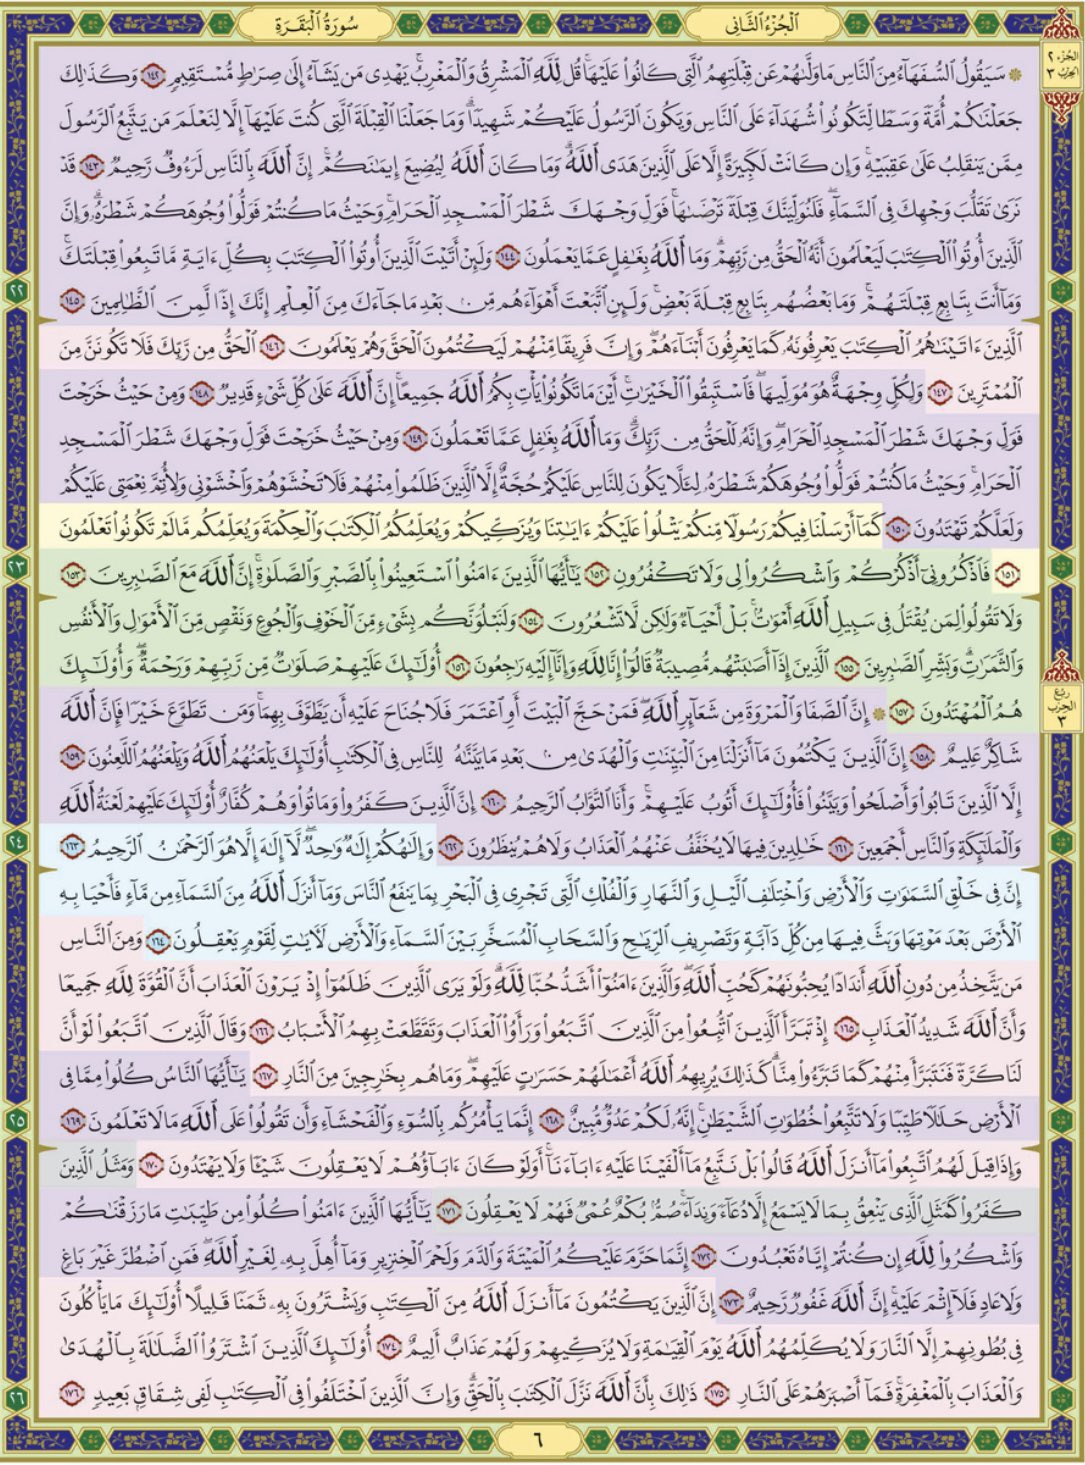 سُورَةُ الْبَقَرَةِ
الْجُزْءُ الثَّانِي
الجزء ٢
الحزب ٣
۞ سَيَقُولُ السُّفَهَاءُ مِنَ النَّاسِ مَا وَلَّىٰهُمْ عَن قِبْلَتِهِمُ الَّتِي كَانُوا عَلَيْهَا ۚ قُل لِّلَّهِ الْمَشْرِقُ وَالْمَغْرِبُ ۚ يَهْدِي مَن يَشَاءُ إِلَىٰ صِرَاطٍ مُّسْتَقِيمٍ ١٤٢ وَكَذَٰلِكَ
جَعَلْنَاكُمْ أُمَّةً وَسَطًا لِّتَكُونُوا شُهَدَاءَ عَلَى النَّاسِ وَيَكُونَ الرَّسُولُ عَلَيْكُمْ شَهِيدًا ۗ وَمَا جَعَلْنَا الْقِبْلَةَ الَّتِي كُنتَ عَلَيْهَا إِلَّا لِنَعْلَمَ مَن يَتَّبِعُ الرَّسُولَ
مِمَّن يَنقَلِبُ عَلَىٰ عَقِبَيْهِ ۚ وَإِن كَانَتْ لَكَبِيرَةً إِلَّا عَلَى الَّذِينَ هَدَى اللَّهُ ۗ وَمَا كَانَ اللَّهُ لِيُضِيعَ إِيمَٰنَكُمْ ۚ إِنَّ اللَّهَ بِالنَّاسِ لَرَءُوفٌ رَّحِيمٌ ١٤٣ قَدْ
نَرَىٰ تَقَلُّبَ وَجْهِكَ فِي السَّمَاءِ ۖ فَلَنُوَلِّيَنَّكَ قِبْلَةً تَرْضَىٰهَا ۚ فَوَلِّ وَجْهَكَ شَطْرَ الْمَسْجِدِ الْحَرَامِ ۚ وَحَيْثُ مَا كُنتُمْ فَوَلُّوا وُجُوهَكُمْ شَطْرَهُ ۗ وَإِنَّ
الَّذِينَ أُوتُوا الْكِتَٰبَ لَيَعْلَمُونَ أَنَّهُ الْحَقُّ مِن رَّبِّهِمْ ۗ وَمَا اللَّهُ بِغَٰفِلٍ عَمَّا يَعْمَلُونَ ١٤٤ وَلَئِنْ أَتَيْتَ الَّذِينَ أُوتُوا الْكِتَٰبَ بِكُلِّ ءَايَةٍ مَّا تَبِعُوا قِبْلَتَكَ ۚ
وَمَا أَنتَ بِتَابِعٍ قِبْلَتَهُمْ ۚ وَمَا بَعْضُهُم بِتَابِعٍ قِبْلَةَ بَعْضٍ ۚ وَلَئِنِ اتَّبَعْتَ أَهْوَاءَهُم مِّن بَعْدِ مَا جَاءَكَ مِنَ الْعِلْمِ إِنَّكَ إِذًا لَّمِنَ الظَّٰلِمِينَ ١٤٥
الَّذِينَ ءَاتَيْنَٰهُمُ الْكِتَٰبَ يَعْرِفُونَهُ كَمَا يَعْرِفُونَ أَبْنَاءَهُمْ ۖ وَإِنَّ فَرِيقًا مِّنْهُمْ لَيَكْتُمُونَ الْحَقَّ وَهُمْ يَعْلَمُونَ ١٤٦ الْحَقُّ مِن رَّبِّكَ فَلَا تَكُونَنَّ مِنَ
الْمُمْتَرِينَ ١٤٧ وَلِكُلٍّ وِجْهَةٌ هُوَ مُوَلِّيهَا ۖ فَاسْتَبِقُوا الْخَيْرَٰتِ ۚ أَيْنَ مَا تَكُونُوا يَأْتِ بِكُمُ اللَّهُ جَمِيعًا ۚ إِنَّ اللَّهَ عَلَىٰ كُلِّ شَيْءٍ قَدِيرٌ ١٤٨ وَمِنْ حَيْثُ خَرَجْتَ
فَوَلِّ وَجْهَكَ شَطْرَ الْمَسْجِدِ الْحَرَامِ ۖ وَإِنَّهُ لَلْحَقُّ مِن رَّبِّكَ ۗ وَمَا اللَّهُ بِغَٰفِلٍ عَمَّا تَعْمَلُونَ ١٤٩ وَمِنْ حَيْثُ خَرَجْتَ فَوَلِّ وَجْهَكَ شَطْرَ الْمَسْجِدِ
الْحَرَامِ ۚ وَحَيْثُ مَا كُنتُمْ فَوَلُّوا وُجُوهَكُمْ شَطْرَهُ لِئَلَّا يَكُونَ لِلنَّاسِ عَلَيْكُمْ حُجَّةٌ إِلَّا الَّذِينَ ظَلَمُوا مِنْهُمْ فَلَا تَخْشَوْهُمْ وَاخْشَوْنِي وَلِأُتِمَّ نِعْمَتِي عَلَيْكُمْ
وَلَعَلَّكُمْ تَهْتَدُونَ ١٥٠ كَمَا أَرْسَلْنَا فِيكُمْ رَسُولًا مِّنكُمْ يَتْلُوا عَلَيْكُمْ ءَايَٰتِنَا وَيُزَكِّيكُمْ وَيُعَلِّمُكُمُ الْكِتَٰبَ وَالْحِكْمَةَ وَيُعَلِّمُكُم مَّا لَمْ تَكُونُوا تَعْلَمُونَ
١٥١ فَاذْكُرُونِي أَذْكُرْكُمْ وَاشْكُرُوا لِي وَلَا تَكْفُرُونِ ١٥٢ يَٰأَيُّهَا الَّذِينَ ءَامَنُوا اسْتَعِينُوا بِالصَّبْرِ وَالصَّلَوٰةِ ۚ إِنَّ اللَّهَ مَعَ الصَّٰبِرِينَ ١٥٣
وَلَا تَقُولُوا لِمَن يُقْتَلُ فِي سَبِيلِ اللَّهِ أَمْوَٰتٌ ۚ بَلْ أَحْيَاءٌ وَلَٰكِن لَّا تَشْعُرُونَ ١٥٤ وَلَنَبْلُوَنَّكُم بِشَيْءٍ مِّنَ الْخَوْفِ وَالْجُوعِ وَنَقْصٍ مِّنَ الْأَمْوَٰلِ وَالْأَنفُسِ
وَالثَّمَرَٰتِ ۗ وَبَشِّرِ الصَّٰبِرِينَ ١٥٥ الَّذِينَ إِذَا أَصَٰبَتْهُم مُّصِيبَةٌ قَالُوا إِنَّا لِلَّهِ وَإِنَّا إِلَيْهِ رَٰجِعُونَ ١٥٦ أُولَٰئِكَ عَلَيْهِمْ صَلَوَٰتٌ مِّن رَّبِّهِمْ وَرَحْمَةٌ ۖ وَأُولَٰئِكَ
هُمُ الْمُهْتَدُونَ ١٥٧ ۞ إِنَّ الصَّفَا وَالْمَرْوَةَ مِن شَعَائِرِ اللَّهِ ۖ فَمَنْ حَجَّ الْبَيْتَ أَوِ اعْتَمَرَ فَلَا جُنَاحَ عَلَيْهِ أَن يَطَّوَّفَ بِهِمَا ۚ وَمَن تَطَوَّعَ خَيْرًا فَإِنَّ اللَّهَ
شَاكِرٌ عَلِيمٌ ١٥٨ إِنَّ الَّذِينَ يَكْتُمُونَ مَا أَنزَلْنَا مِنَ الْبَيِّنَٰتِ وَالْهُدَىٰ مِن بَعْدِ مَا بَيَّنَّٰهُ لِلنَّاسِ فِي الْكِتَٰبِ ۙ أُولَٰئِكَ يَلْعَنُهُمُ اللَّهُ وَيَلْعَنُهُمُ اللَّٰعِنُونَ ١٥٩
إِلَّا الَّذِينَ تَابُوا وَأَصْلَحُوا وَبَيَّنُوا فَأُولَٰئِكَ أَتُوبُ عَلَيْهِمْ ۚ وَأَنَا التَّوَّابُ الرَّحِيمُ ١٦٠ إِنَّ الَّذِينَ كَفَرُوا وَمَاتُوا وَهُمْ كُفَّارٌ أُولَٰئِكَ عَلَيْهِمْ لَعْنَةُ اللَّهِ
وَالْمَلَٰئِكَةِ وَالنَّاسِ أَجْمَعِينَ ١٦١ خَٰلِدِينَ فِيهَا ۖ لَا يُخَفَّفُ عَنْهُمُ الْعَذَابُ وَلَا هُمْ يُنظَرُونَ ١٦٢ وَإِلَٰهُكُمْ إِلَٰهٌ وَٰحِدٌ ۖ لَّا إِلَٰهَ إِلَّا هُوَ الرَّحْمَٰنُ الرَّحِيمُ ١٦٣
إِنَّ فِي خَلْقِ السَّمَٰوَٰتِ وَالْأَرْضِ وَاخْتِلَٰفِ الَّيْلِ وَالنَّهَارِ وَالْفُلْكِ الَّتِي تَجْرِي فِي الْبَحْرِ بِمَا يَنفَعُ النَّاسَ وَمَا أَنزَلَ اللَّهُ مِنَ السَّمَاءِ مِن مَّاءٍ فَأَحْيَا بِهِ
الْأَرْضَ بَعْدَ مَوْتِهَا وَبَثَّ فِيهَا مِن كُلِّ دَابَّةٍ وَتَصْرِيفِ الرِّيَٰحِ وَالسَّحَابِ الْمُسَخَّرِ بَيْنَ السَّمَاءِ وَالْأَرْضِ لَءَايَٰتٍ لِّقَوْمٍ يَعْقِلُونَ ١٦٤ وَمِنَ النَّاسِ
مَن يَتَّخِذُ مِن دُونِ اللَّهِ أَندَادًا يُحِبُّونَهُمْ كَحُبِّ اللَّهِ ۖ وَالَّذِينَ ءَامَنُوا أَشَدُّ حُبًّا لِّلَّهِ ۗ وَلَوْ يَرَى الَّذِينَ ظَلَمُوا إِذْ يَرَوْنَ الْعَذَابَ أَنَّ الْقُوَّةَ لِلَّهِ جَمِيعًا
وَأَنَّ اللَّهَ شَدِيدُ الْعَذَابِ ١٦٥ إِذْ تَبَرَّأَ الَّذِينَ اتُّبِعُوا مِنَ الَّذِينَ اتَّبَعُوا وَرَأَوُا الْعَذَابَ وَتَقَطَّعَتْ بِهِمُ الْأَسْبَابُ ١٦٦ وَقَالَ الَّذِينَ اتَّبَعُوا لَوْ أَنَّ
لَنَا كَرَّةً فَنَتَبَرَّأَ مِنْهُمْ كَمَا تَبَرَّءُوا مِنَّا ۗ كَذَٰلِكَ يُرِيهِمُ اللَّهُ أَعْمَٰلَهُمْ حَسَرَٰتٍ عَلَيْهِمْ ۖ وَمَا هُم بِخَٰرِجِينَ مِنَ النَّارِ ١٦٧ يَٰأَيُّهَا النَّاسُ كُلُوا مِمَّا فِي
الْأَرْضِ حَلَٰلًا طَيِّبًا وَلَا تَتَّبِعُوا خُطُوَٰتِ الشَّيْطَٰنِ ۚ إِنَّهُ لَكُمْ عَدُوٌّ مُّبِينٌ ١٦٨ إِنَّمَا يَأْمُرُكُم بِالسُّوءِ وَالْفَحْشَاءِ وَأَن تَقُولُوا عَلَى اللَّهِ مَا لَا تَعْلَمُونَ ١٦٩
وَإِذَا قِيلَ لَهُمُ اتَّبِعُوا مَا أَنزَلَ اللَّهُ قَالُوا بَلْ نَتَّبِعُ مَا أَلْفَيْنَا عَلَيْهِ ءَابَاءَنَا ۗ أَوَلَوْ كَانَ ءَابَاؤُهُمْ لَا يَعْقِلُونَ شَيْـًٔا وَلَا يَهْتَدُونَ ١٧٠ وَمَثَلُ الَّذِينَ
كَفَرُوا كَمَثَلِ الَّذِي يَنْعِقُ بِمَا لَا يَسْمَعُ إِلَّا دُعَاءً وَنِدَاءً ۚ صُمٌّ بُكْمٌ عُمْيٌ فَهُمْ لَا يَعْقِلُونَ ١٧١ يَٰأَيُّهَا الَّذِينَ ءَامَنُوا كُلُوا مِن طَيِّبَٰتِ مَا رَزَقْنَٰكُمْ
وَاشْكُرُوا لِلَّهِ إِن كُنتُمْ إِيَّاهُ تَعْبُدُونَ ١٧٢ إِنَّمَا حَرَّمَ عَلَيْكُمُ الْمَيْتَةَ وَالدَّمَ وَلَحْمَ الْخِنزِيرِ وَمَا أُهِلَّ بِهِ لِغَيْرِ اللَّهِ ۖ فَمَنِ اضْطُرَّ غَيْرَ بَاغٍ
وَلَا عَادٍ فَلَا إِثْمَ عَلَيْهِ ۚ إِنَّ اللَّهَ غَفُورٌ رَّحِيمٌ ١٧٣ إِنَّ الَّذِينَ يَكْتُمُونَ مَا أَنزَلَ اللَّهُ مِنَ الْكِتَٰبِ وَيَشْتَرُونَ بِهِ ثَمَنًا قَلِيلًا ۙ أُولَٰئِكَ مَا يَأْكُلُونَ
فِي بُطُونِهِمْ إِلَّا النَّارَ وَلَا يُكَلِّمُهُمُ اللَّهُ يَوْمَ الْقِيَٰمَةِ وَلَا يُزَكِّيهِمْ وَلَهُمْ عَذَابٌ أَلِيمٌ ١٧٤ أُولَٰئِكَ الَّذِينَ اشْتَرَوُا الضَّلَٰلَةَ بِالْهُدَىٰ
وَالْعَذَابَ بِالْمَغْفِرَةِ ۚ فَمَا أَصْبَرَهُمْ عَلَى النَّارِ ١٧٥ ذَٰلِكَ بِأَنَّ اللَّهَ نَزَّلَ الْكِتَٰبَ بِالْحَقِّ ۗ وَإِنَّ الَّذِينَ اخْتَلَفُوا فِي الْكِتَٰبِ لَفِي شِقَاقٍ بَعِيدٍ ١٧٦
ربع
الحزب
٣
٢٢
٢٣
٢٤
٢٥
٢٦
٦